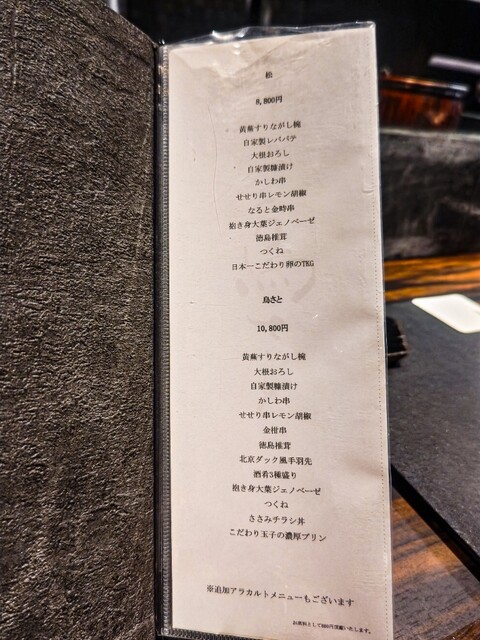 松
8,800円
黄蕪すりながし椀
自家製レバパテ
大根おろし
自家製糠漬け
かしわ串
せせり串レモン胡椒
なると金時串
抱き身大葉ジェノベーゼ
徳島椎茸
つくね
日本一こだわり卵のTKG
鳥さと
10,800円
黄蕪すりながし椀
大根おろし
自家製糠漬け
かしわ串
せせり串レモン胡椒
金柑串
徳島椎茸
北京ダック風手羽先
酒肴3種盛り
抱き身大葉ジェノベーゼ
つくね
ささみチラシ丼
こだわり玉子の濃厚プリン
※追加アラカルトメニューもございます
お席料として880円頂戴いたします。